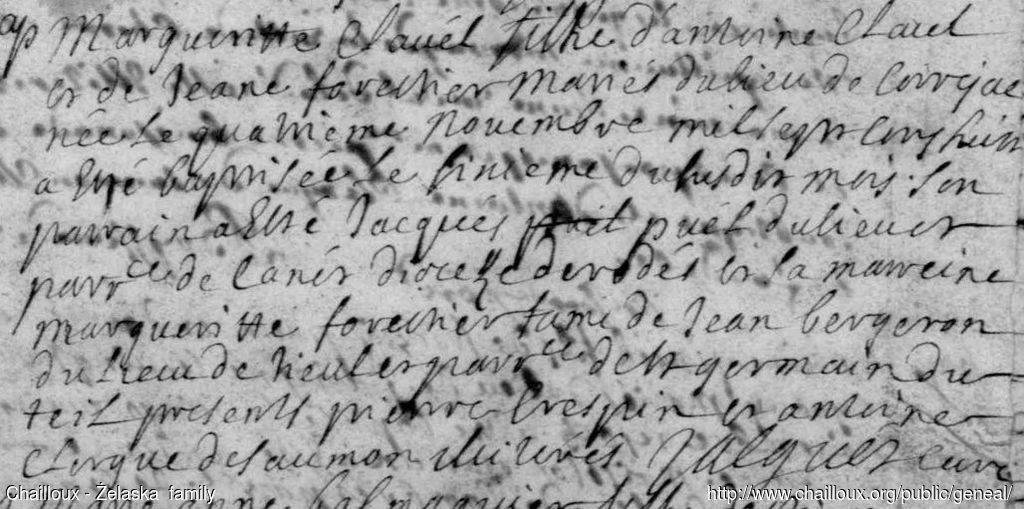 ap Margueritte Clavel fillhe d'antoine Clavel
et de Jeane forestier mariés du lieu de
née le quatrieme novembre mil sept cens huit
a esté baptisée le sixieme du susdit mois. son
parrain a esté Jacques puel du lieu et
parr.ce de Canet dioceze de rodés et sa marreine
margueritte forestier fame de Jean bergeron
du lieu de et parr.ce de st germain du
teil presents pierre Crespin et antoine
Clergue de saumon illiterés Jalguet curé
Chailloux - Żelaska family
http://www.chailloux.org/public/geneal/